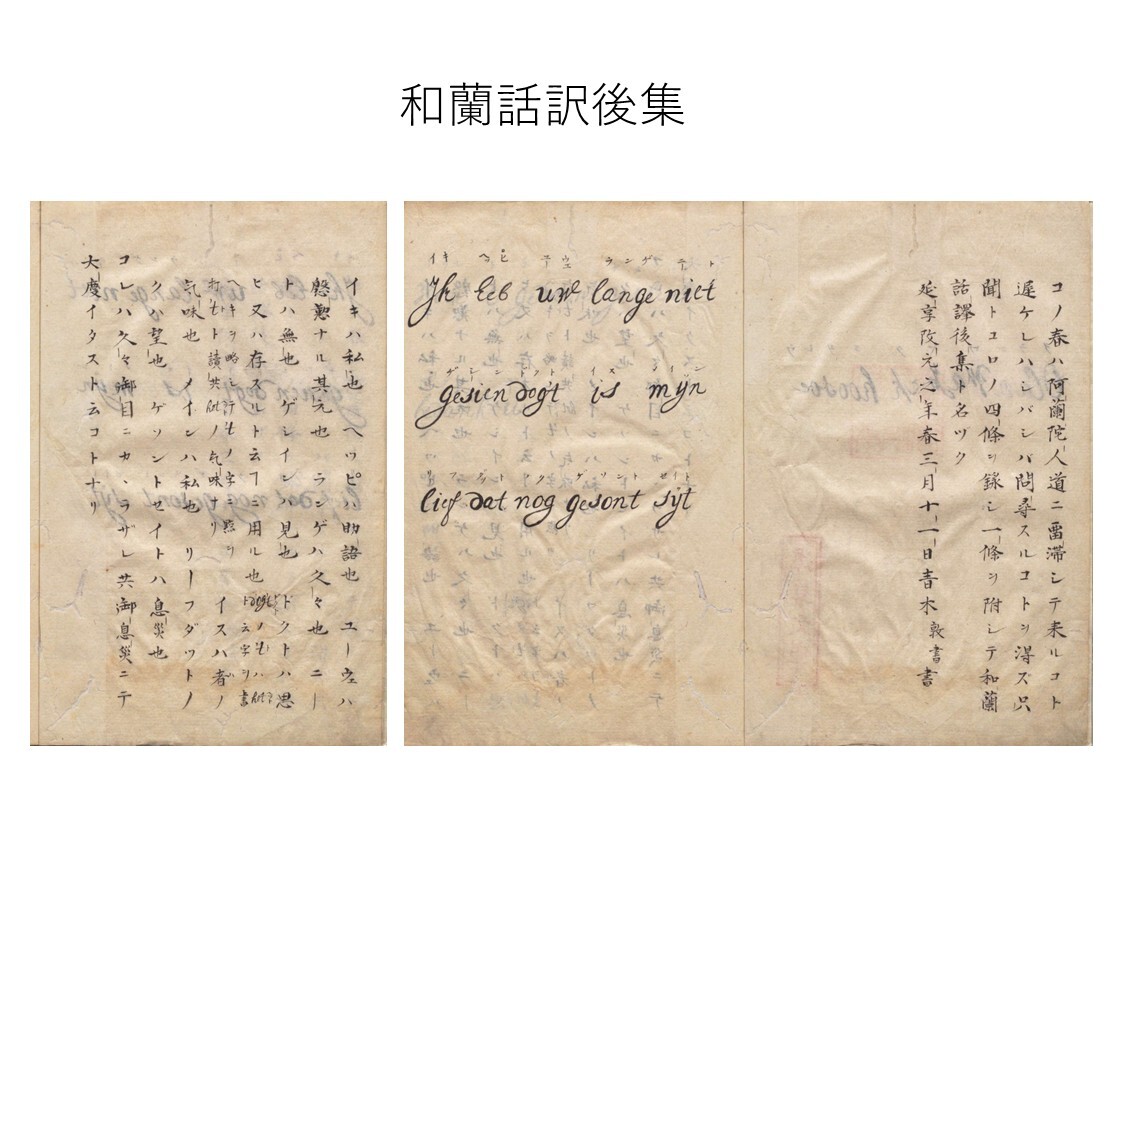 和蘭話訳後集
コノ春ハ阿蘭陀人道ニ畱滞シテ来ルコト
遅ケレハシバシバ問尋スルコトヲ得ズ只
聞トコロノ四條ヲ録シ一條ヲ附シテ和蘭
話譯後集ト名ツク
延享改元之年春三月十一日青木敦書書
イキ ヘピ ユウェ ランゲ ニト
Jk heb uwe lange niet
ゲシイン ドクト イス メイン
gesien dogt is mijn
リフ ダット ノク ゲソント セイト
lief dat nog gesont sijt
イキハ私也 ヘツピハ助語也 ユーウェハ
慇懃ナル其元也 ランゲハ久々也 ニー
トハ無也 ゲシインハ見也 ドクトハ思
ヒ又ハ存スルト云フニ用ル也
イスハ者ノ
気味也 メインハ私也 リーフダットノ
クハ望也 ゲソントセイトハ息災也
コレハ久々御目ニカヽラザレ共御息災ニテ
大慶イタスト云コトナリ